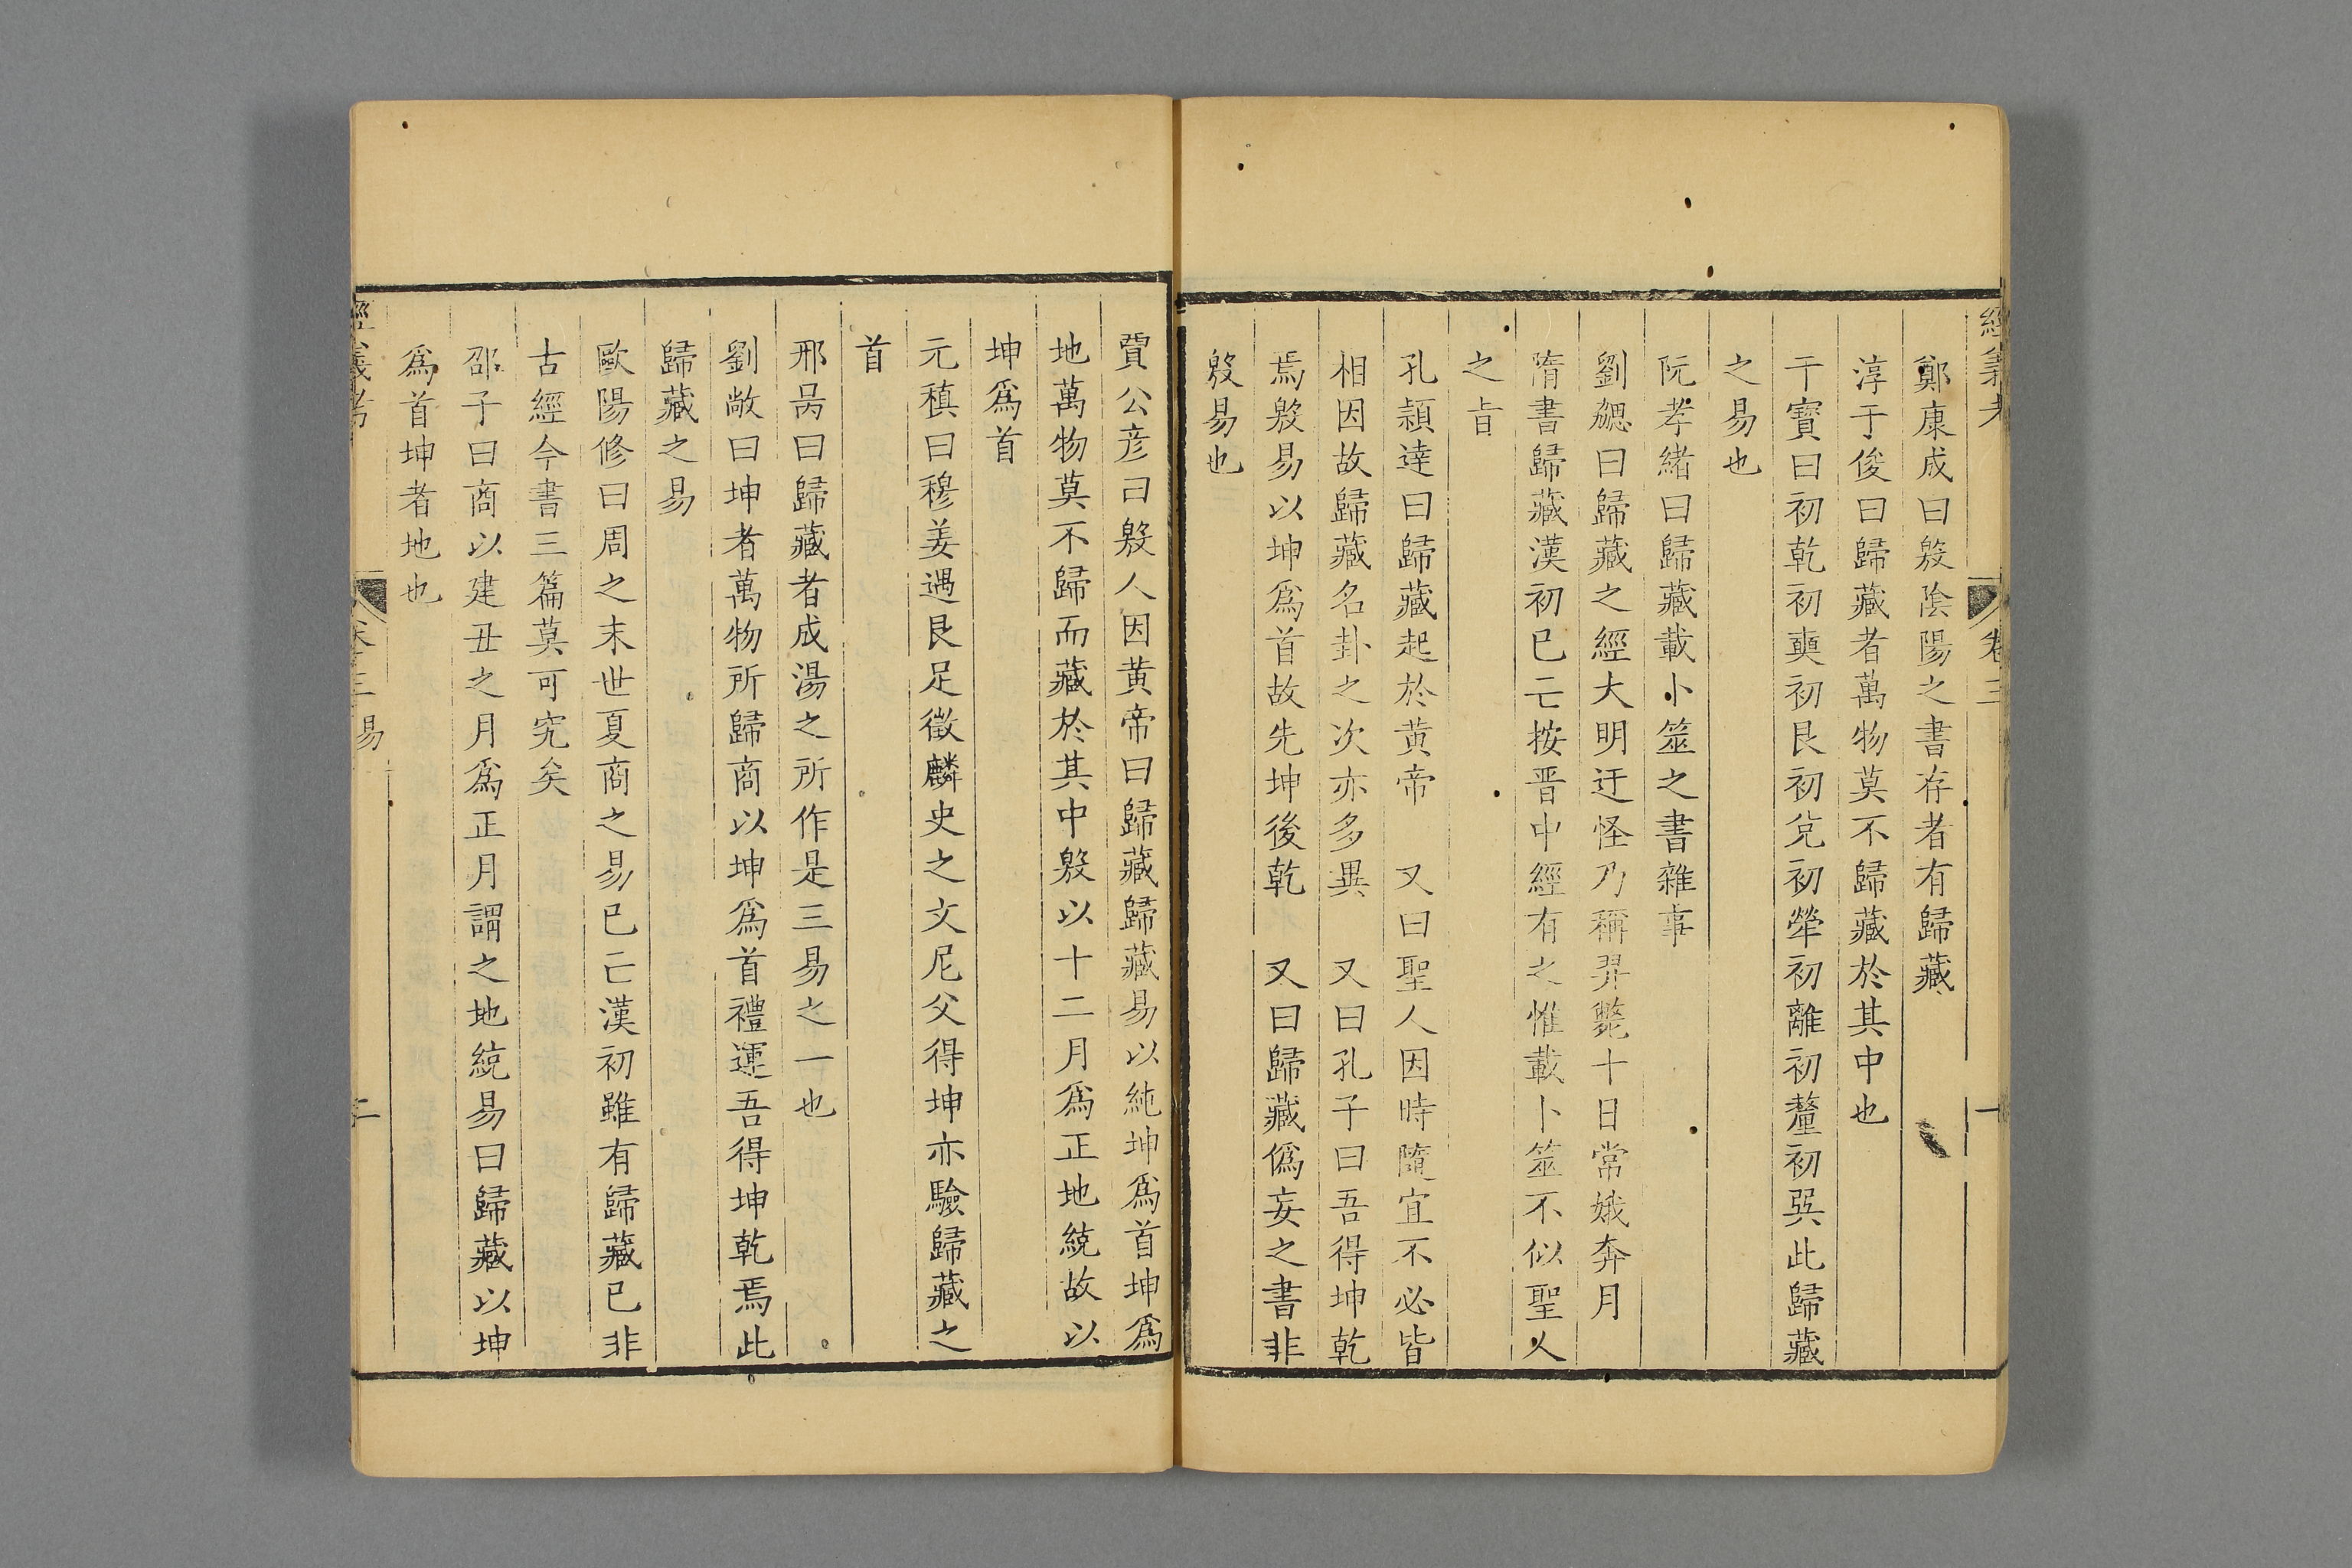 經義考
卷三
一
鄭康成曰殷陰陽之書存者有歸藏
淳于俊曰歸藏者萬物莫不歸藏於其中也
干寶曰初乾初奭初艮初兌初犖初離初釐初巽此歸藏
之易也
阮孝緒曰歸藏載卜筮之書雜事
劉勰曰歸藏之經大明迂怪乃稱羿斃十日常娥奔月
隋書歸藏漢初已亡按晋中經有之惟載卜筮不似聖人
之旨
孔穎達曰歸藏起於黄帝　又曰聖人因時隨宜不必皆
相因故歸藏名卦之次亦多異　又曰孔子曰吾得坤乾
焉殷易以坤爲首故先坤後乾　又曰歸藏僞妄之書非
殷易也
賈公彦曰殷人因黄帝曰歸藏歸藏易以純坤爲首坤爲
地萬物莫不歸而藏於其中殷以十二月爲正地統故以
坤爲首
元稹曰穆姜遇艮足徵麟史之文尼父得坤亦驗歸藏之
首
邢昺曰歸藏者成湯之所作是三易之一也
劉敞曰坤者萬物所歸商以坤爲首禮運吾得坤乾焉此
歸藏之易
歐陽修曰周之末世夏商之易已亡漢初雖有歸藏已非
古經今書三篇莫可究矣
邵子曰商以建丑之月爲正月謂之地統易曰歸藏以坤
爲首坤者地也
經義考
卷三　易
二